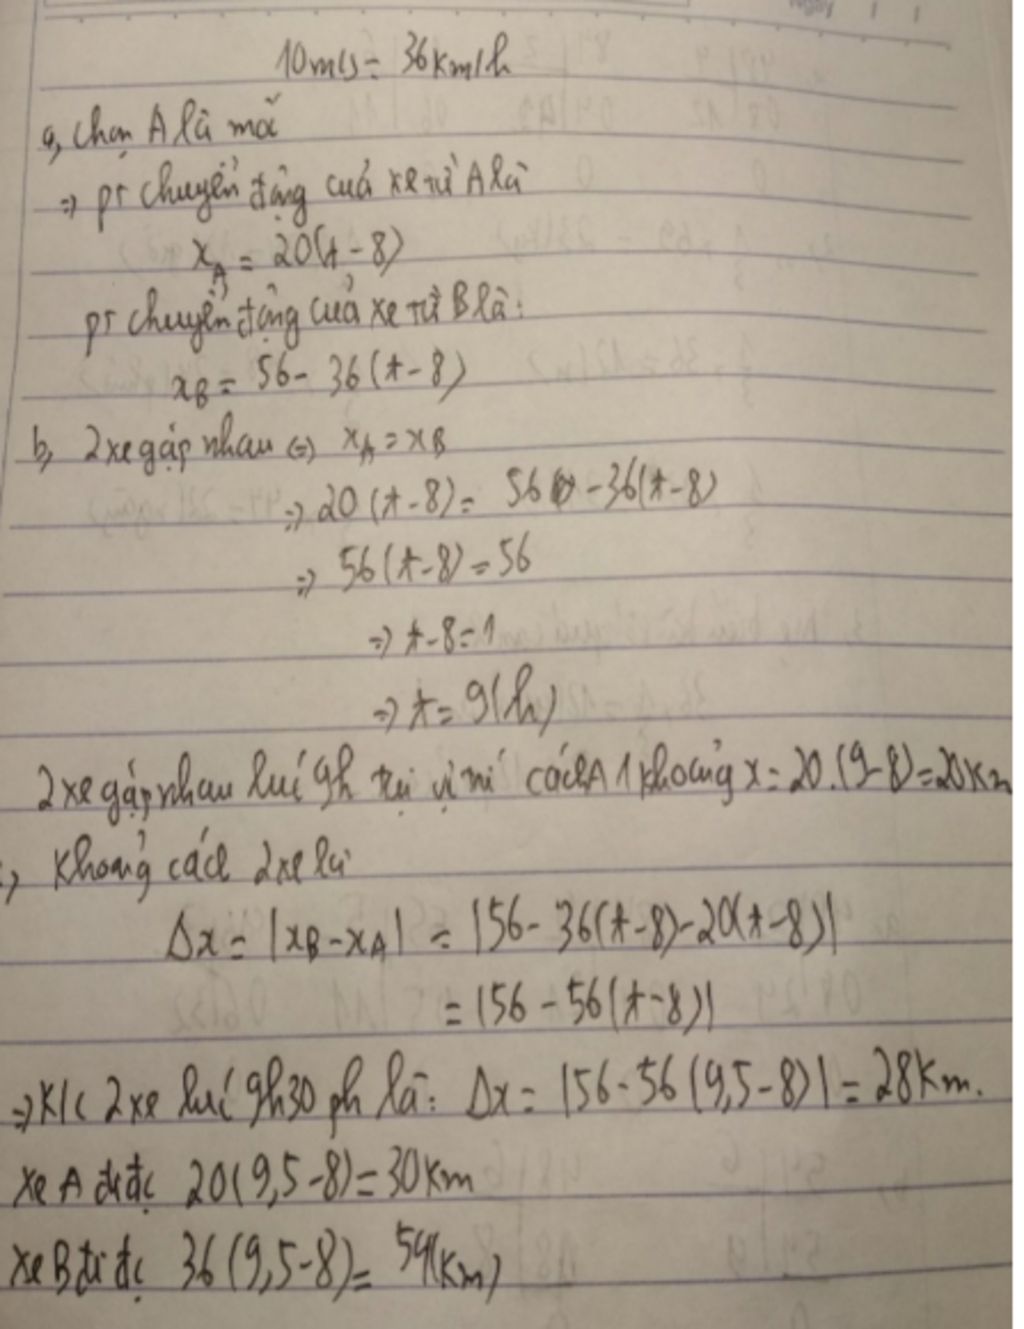 10m/s = 36km/h
a, chọn A là mốc
=> pt chuyển động của xe từ A là
x_A = 20(t-8)
pt chuyển động của xe từ B là:
x_B = 56 - 36(t-8)
b, 2 xe gặp nhau <=> x_A = x_B
=> 20(t-8) = 56 - 36(t-8)
=> 56(t-8) = 56
=> t-8 = 1
=> t = 9(h)
2 xe gặp nhau lúc 9h tại vị trí cách A 1 khoảng x = 20.(9-8) = 20km
, Khoảng cách 2 xe là
Δx = |x_B - x_A| = |56 - 36(t-8) - 20(t-8)|
= |56 - 56(t-8)|
=> K/c 2 xe lúc 9h30 ph là: Δx = |56 - 56(9,5-8)| = 28km.
Xe A đi đc 20(9,5-8) = 30km
Xe B đi đc 36(9,5-8) = 54(km)